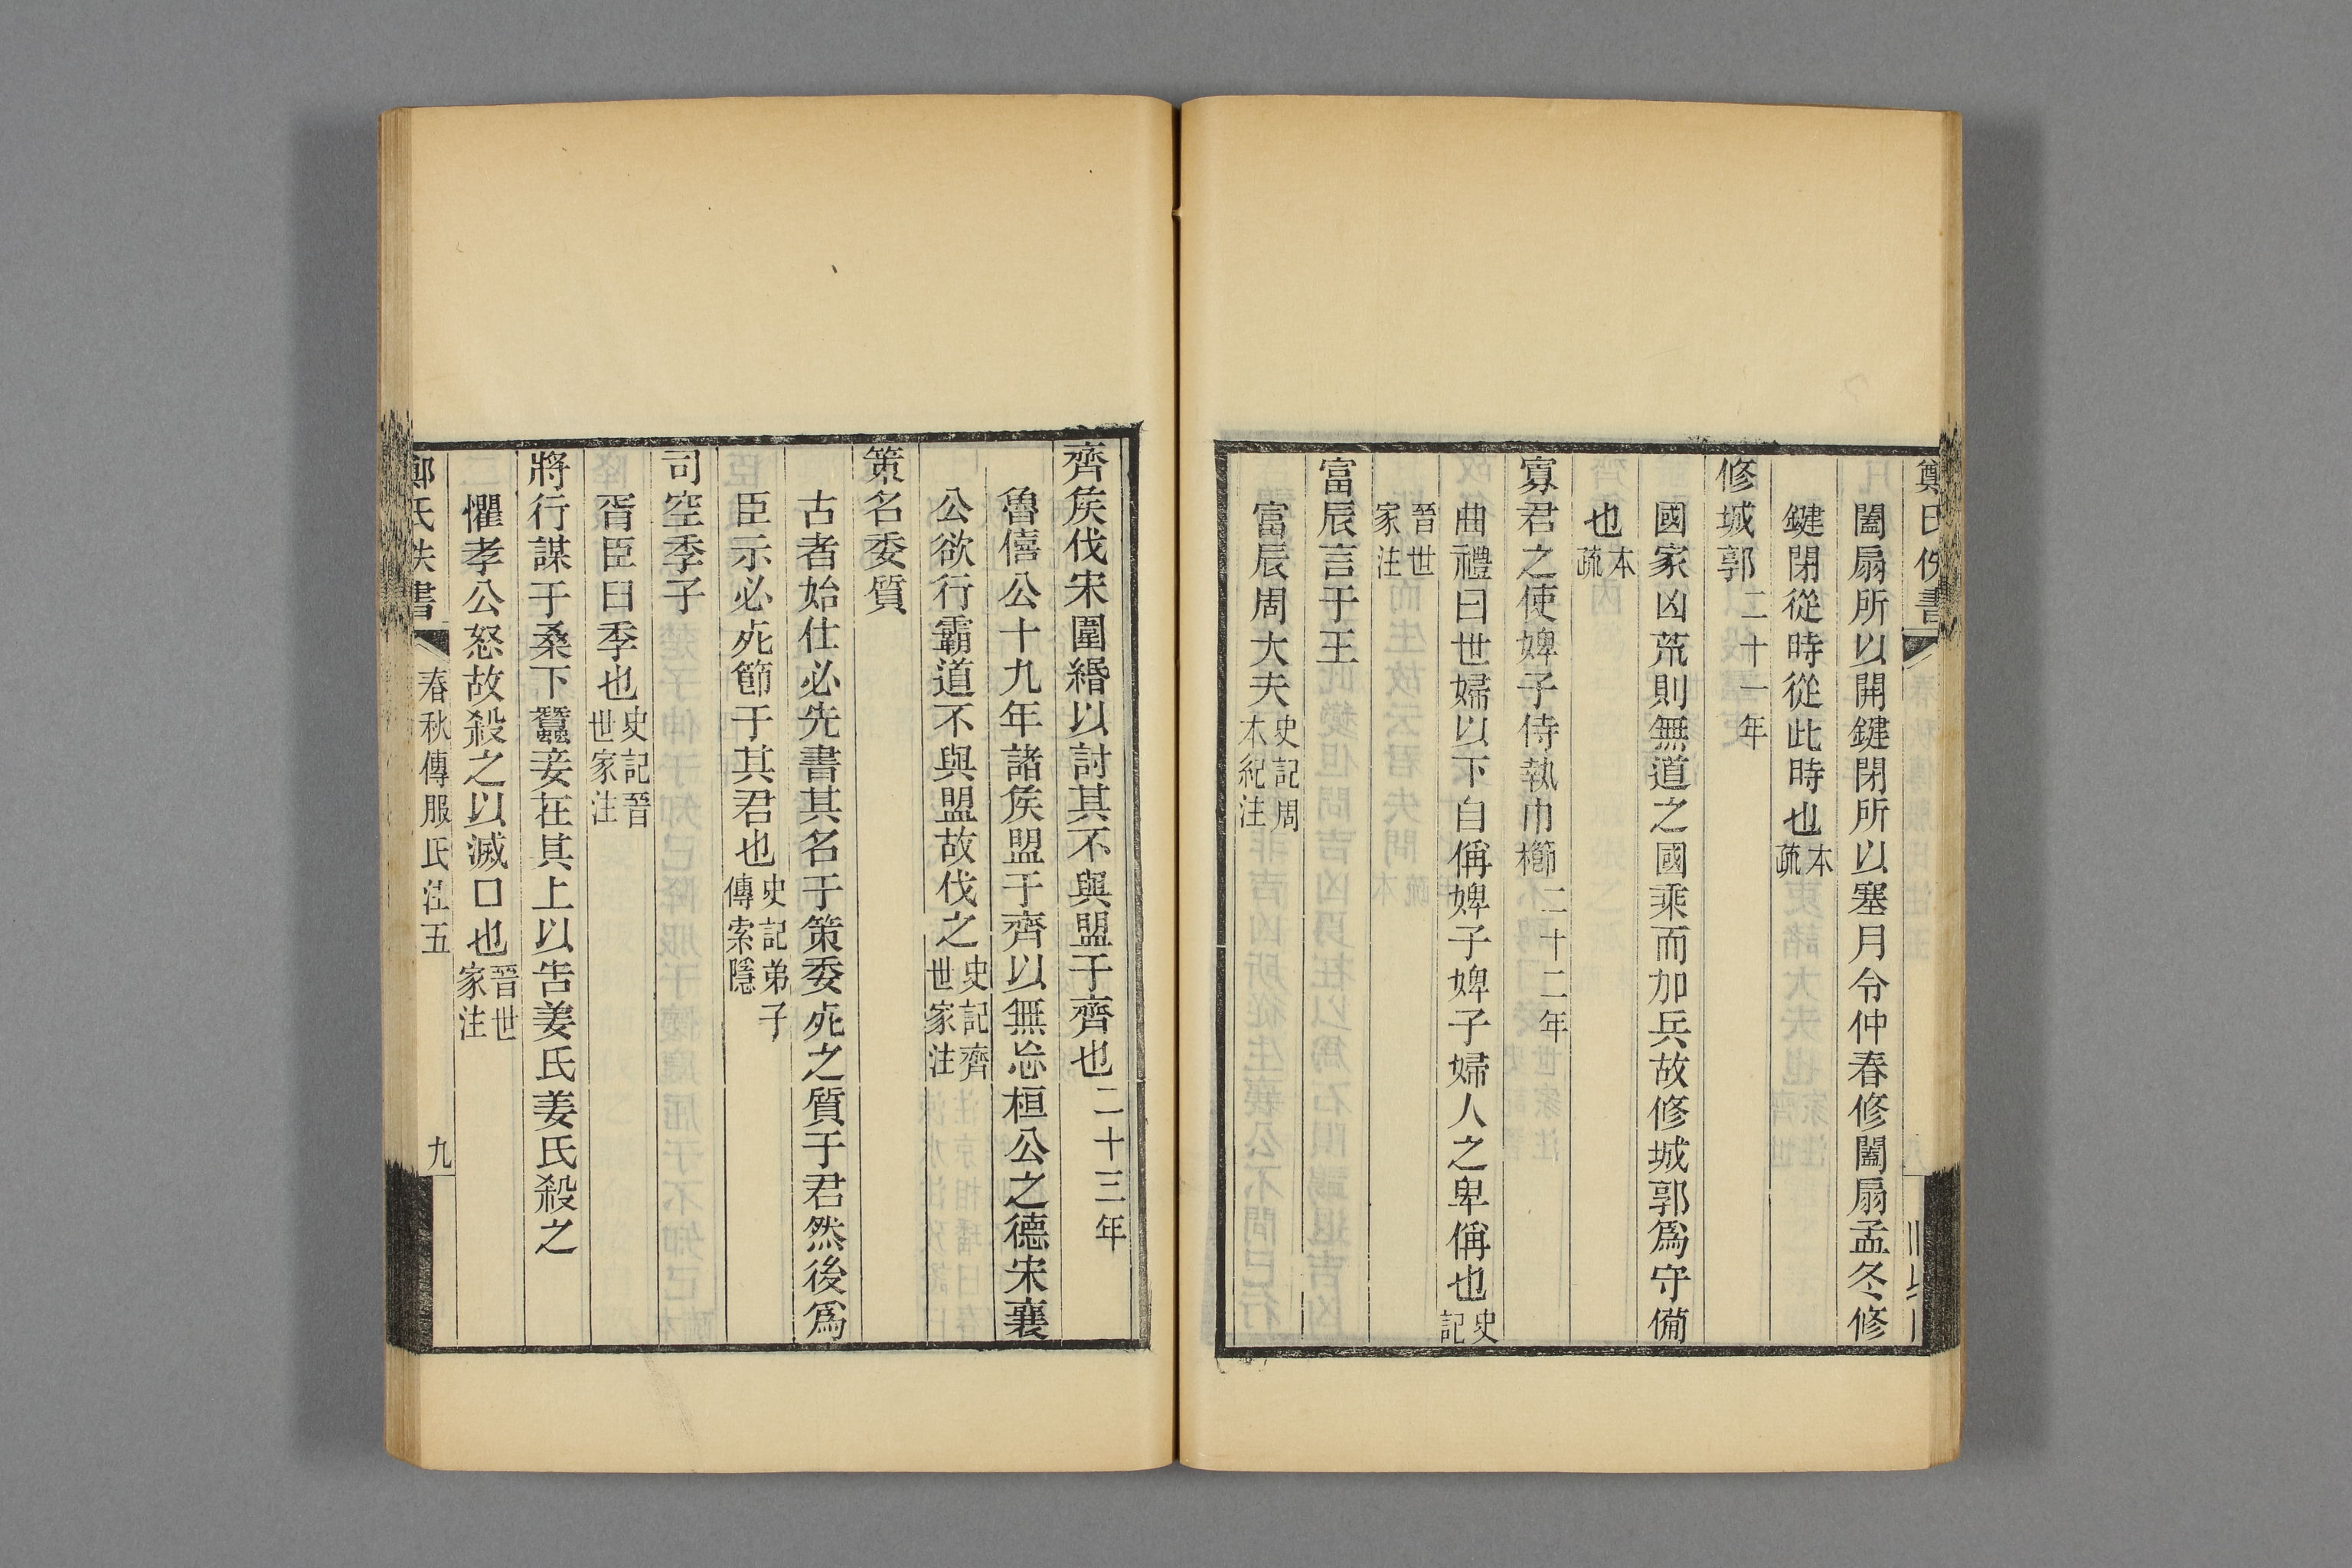 闔扇所以開鍵閉所以塞月令仲春修闔扇孟冬修
鍵閉從時從此時也本疏
修城郭二十一年
國家凶荒則無道之國乘而加兵故修城郭爲守備
也本疏
寡君之使婢子侍執巾櫛二十二年
曲禮曰世婦以下自偁婢子婢子婦人之卑偁也史記
晉世家注
富辰言于王
富辰周大夫史記周本紀注
齊矦伐宋圍緡以討其不與盟于齊也二十三年
魯僖公十九年諸矦盟于齊以無忘桓公之德宋襄
公欲行霸道不與盟故伐之史記齊世家注
策名委質
古者始仕必先書其名于策委死之質于君然後爲
臣示必死節于其君也史記弟子傳索隱
司空季子
胥臣臼季也史記晉世家注
將行謀于桑下蠶妾在其上以告姜氏姜氏殺之
懼孝公怒故殺之以滅口也晉世家注
氏佚書 春秋傳服氏注五 九